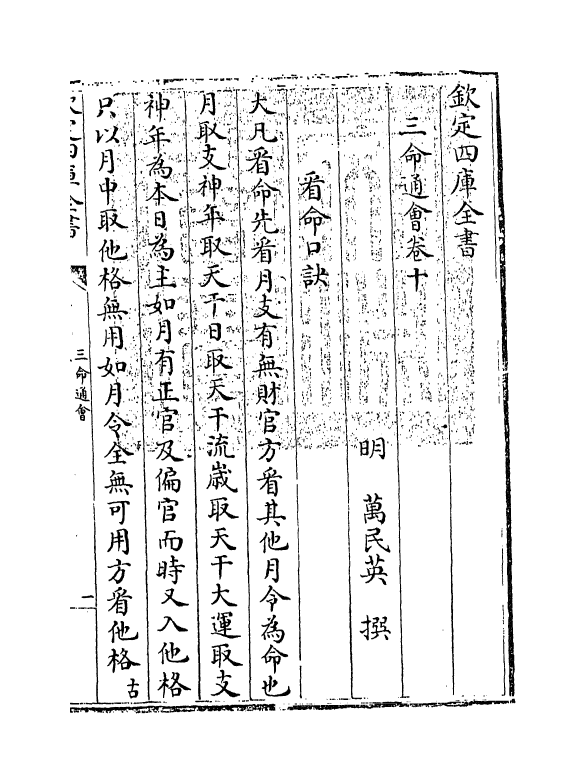 欽定四庫全書
三命通會卷十
明 萬民英 撰
看命口訣
大凡看命先看月支有無財官方看其他月令為命也
月取支神年取天干日取天干流歲取天干大運取支
神年為本日為主如月有正官及偏官而時又入他格
只以月中取他格無用如月令全無可用方看他格古
三命通會
一
欽定四庫全書